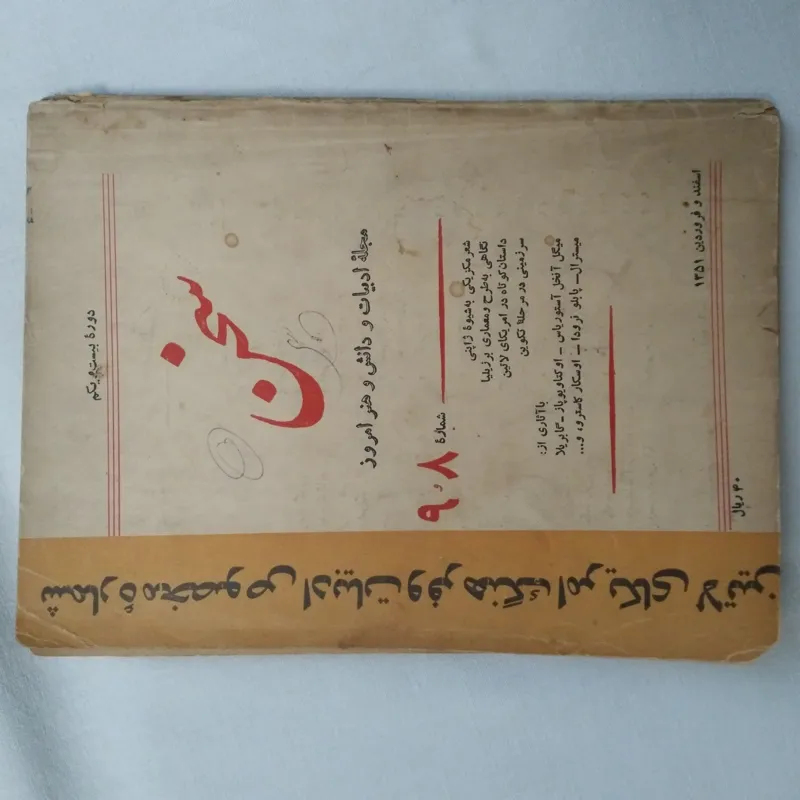 دورهٔ بیست و یکم
سخن
مجلهٔ ادبیات و دانش و هنر امروز
شمارهٔ
۸ و ۹
شعر مکزیکی به شیوهٔ ژاپنی
نگاهی به طرح و معماری برزیلیا
داستان کوتاه در امریکای لاتین
سرزمینی در مرحلهٔ تکوین
با آثاری از:
میگل آنخل آستوریاس - اوکتاویو پاز - گابریلا
میسترال - پابلو نرودا - اوسکار کاسترو، و...
اسفند و فروردین ۱۳۵۱
۳۰ ریال
شمارهٔ مخصوص ادبیات و فرهنگ امریکای لاتین